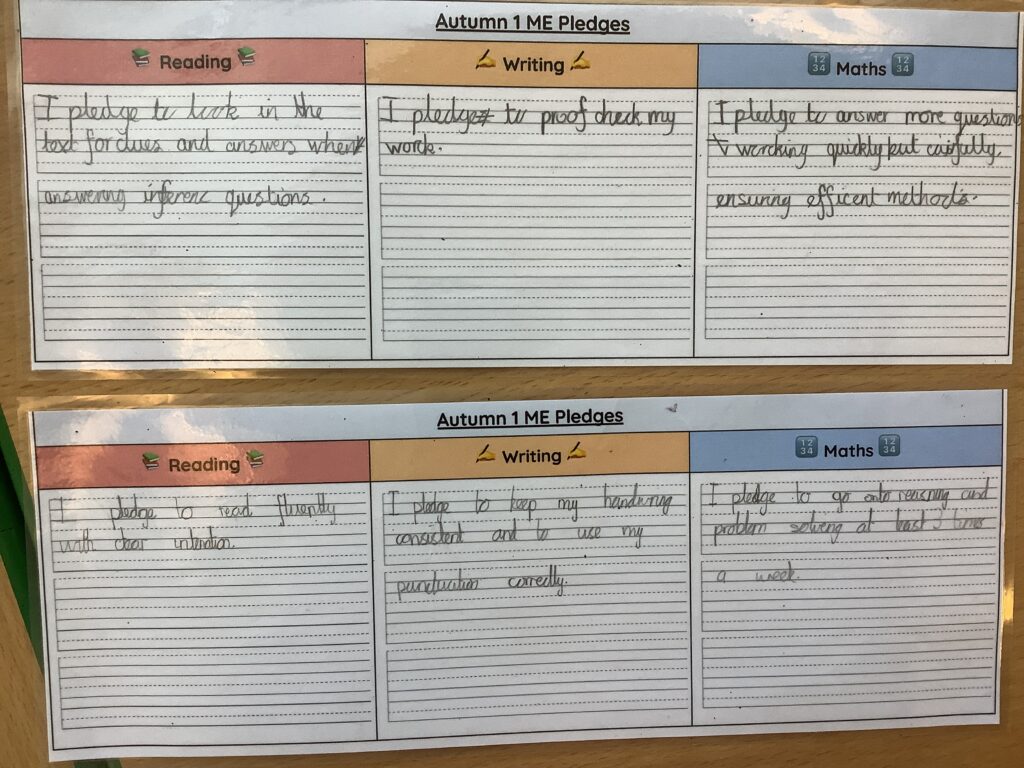 Autumn 1 ME Pledges
Reading
I pledge to look in the
text for clues and answers when
answering inferenc questions.
Writing
I pledge to proof check my
work.
Maths
1234
1234
I pledge to answer more questions
working quickly but cairfully,
ensuring efficent methods.
Autumn 1 ME Pledges
Reading
I pledge to read fluently
with clear intention.
Writing
I pledge to keep my handwring
consistent and to use my
punctuation correctly.
Maths
1234
1234
I pledge to go onto reasning and
problem solveng at least 3 times
a week.